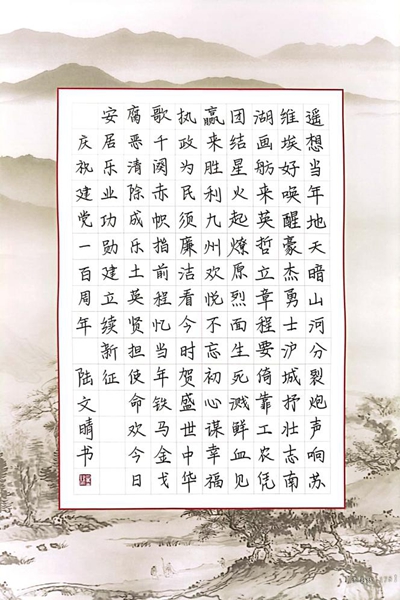 遥想当年地天暗山河分裂炮声响苏
维埃好唤醒豪杰勇士沪城抒壮志南
湖画舫来英哲立章程要倚靠工农凭
团结星火起燎原烈面生死溅鲜血见
赢来胜利九州欢悦不忘初心谋幸福
执政为民须廉洁看今时贺盛世中华
歌千阕赤帜指前程忆当年铁马金戈
腐恶清除成乐土英贤担使命欢今日
安居乐业功勋建立续新征
庆祝建党一百周年 陆文晴书